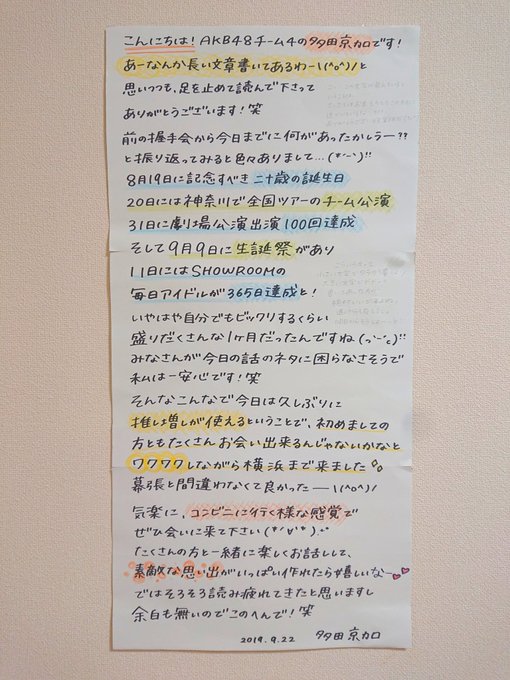 こんにちは! AKB48チーム4の多田京加です!
あーなんか長い文章書いてあるわー\(^o^)/と
思いつつも、足を止めて読んで下さって
ありがとうございます!笑
前の握手会から今日までに何があったかしらー??
と振り返ってみると色々ありまして…
8月19日に記念すべき二十歳の誕生日
20日には神奈川で全国ツアーのチーム公演
31日に劇場公演出演100回達成
そして9月9日に生誕祭があり
11日にはSHOWROOMの
毎日アイドルが365日達成と!
いやはや自分でもビックリするくらい
盛りだくさんな1ヶ月だったんですね
みなさんが今日の話のネタに困らなさそうで
私は一安心です!笑
そんなこんなで今日は久しぶりに
推し増しが使えるということで、初めましての
方ともたくさんお会い出来るんじゃないかなと
ワクワクしながら横浜まで来ました
幕張と間違わなくて良かったー\(^o^)/
気楽に、コンビニに行く様な感覚で
ぜひ会いに来て下さい
たくさんの方と一緒に楽しくお話しして、
素敵な思い出がいっぱい作れたら嬉しいなー
ではそろそろ読み疲れてきたと思いますし
余白も無いのでこのへんで!笑
2019.9.22 多田京加